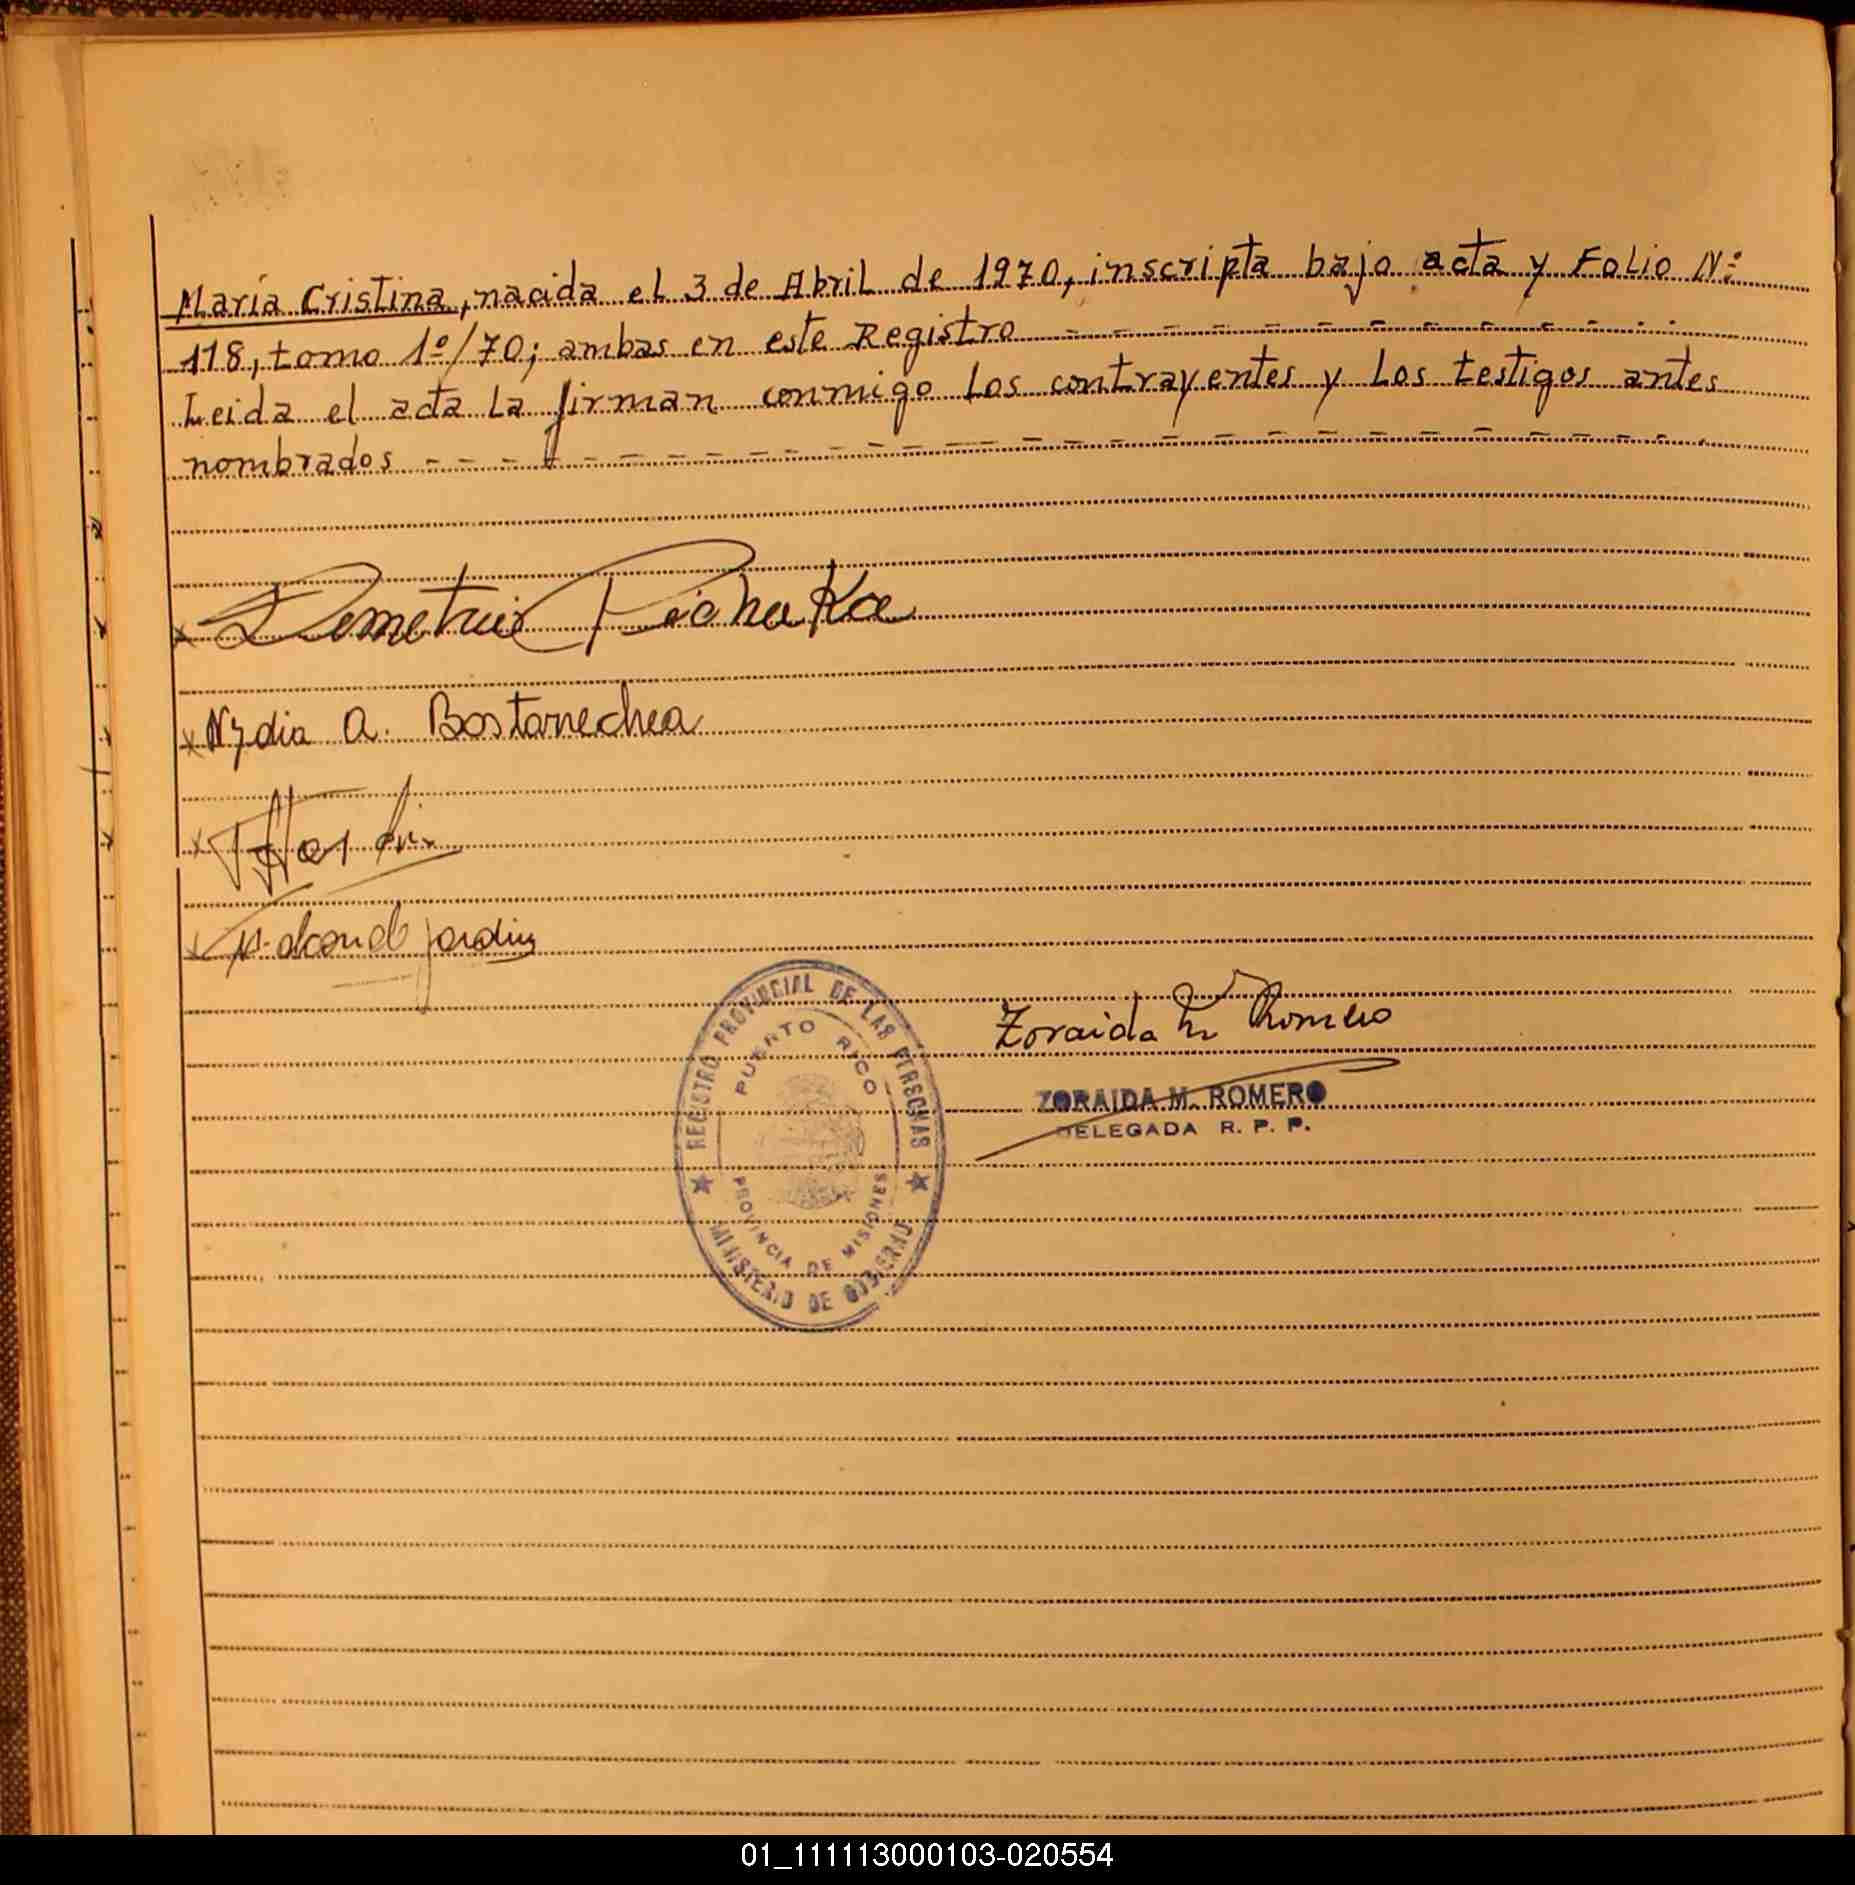 María Cristina, nacida el 3 de Abril de 1970, inscripta bajo acta y Folio Nº
118, tomo 1º/70; ambas en este Registro
Leida el acta la firman conmigo los contrayentes y los testigos antes
nombrados
x Demetrio
x Nydia A. Bostanechea
x
x
REGISTRO PROVINCIAL DE LAS PERSONAS
PUERTO RICO
PROVINCIA DE MISIONES
MINISTERIO DE GOBIERNO
Zoraida M Romero
ZORAIDA M. ROMERO
DELEGADA R. P. P.
01_111113000103-020554